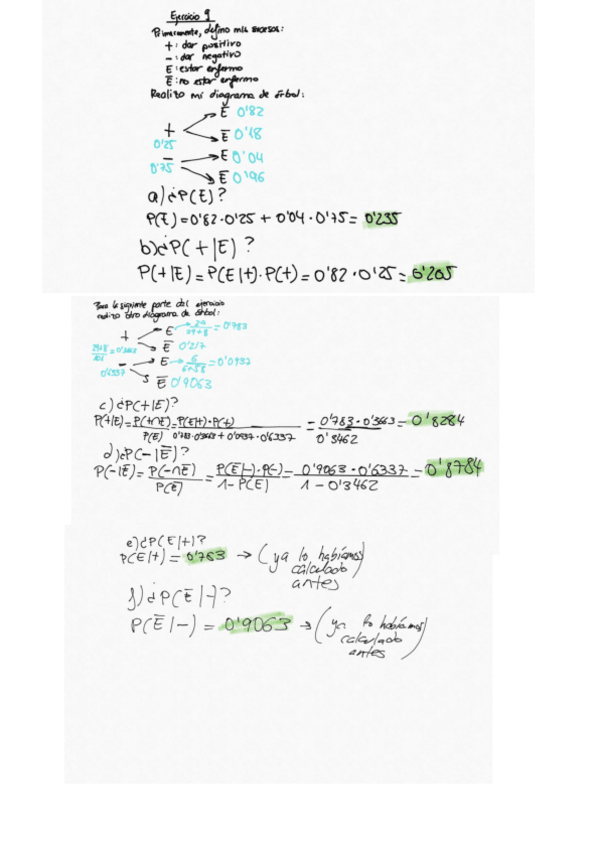 Ejercicio 9
Primeramente, defino mis sucesos:
+: dar positivo
-: dar negativo
E: estar enfermo
E̅: no estar enfermo
Realizo mi diagrama de árbol:
E 0'82
+
0'25
E̅ 0'18
-
0'75
E 0'04
E̅ 0'96
a) ¿P(E)?
P(E) = 0'82·0'25 + 0'04·0'75 = 0'235
b) ¿P(+|E)?
P(+|E) = P(E|+)·P(+) = 0'82·0'25 = 0'205
Para la siguiente parte del ejercicio
realizo otro diagrama de árbol:
E → 29/29+8 = 0'783
+
E̅ 0'217
-
0'6337
E → 6/6+58 = 0'0937
E̅ 0'9063
c) ¿P(+|E)?
P(+|E) = P(+∩E)/P(E) = P(E|+)·P(+)/0'783·0'3663+0'0937·0'6337 = 0'783·0'3663/0'3462 = 0'8284
d) ¿P(-|E̅)?
P(-|E̅) = P(-∩E̅)/P(E̅) = P(E̅|-)·P(-)/1-P(E) = 0'9063·0'6337/1-0'3462 = 0'8784
e) ¿P(E|+)?
P(E|+) = 0'783 → (ya lo habíamos
calculado
antes)
f) ¿P(E̅|-)?
P(E̅|-) = 0'9063 → (ya lo habíamos
calculado
antes)